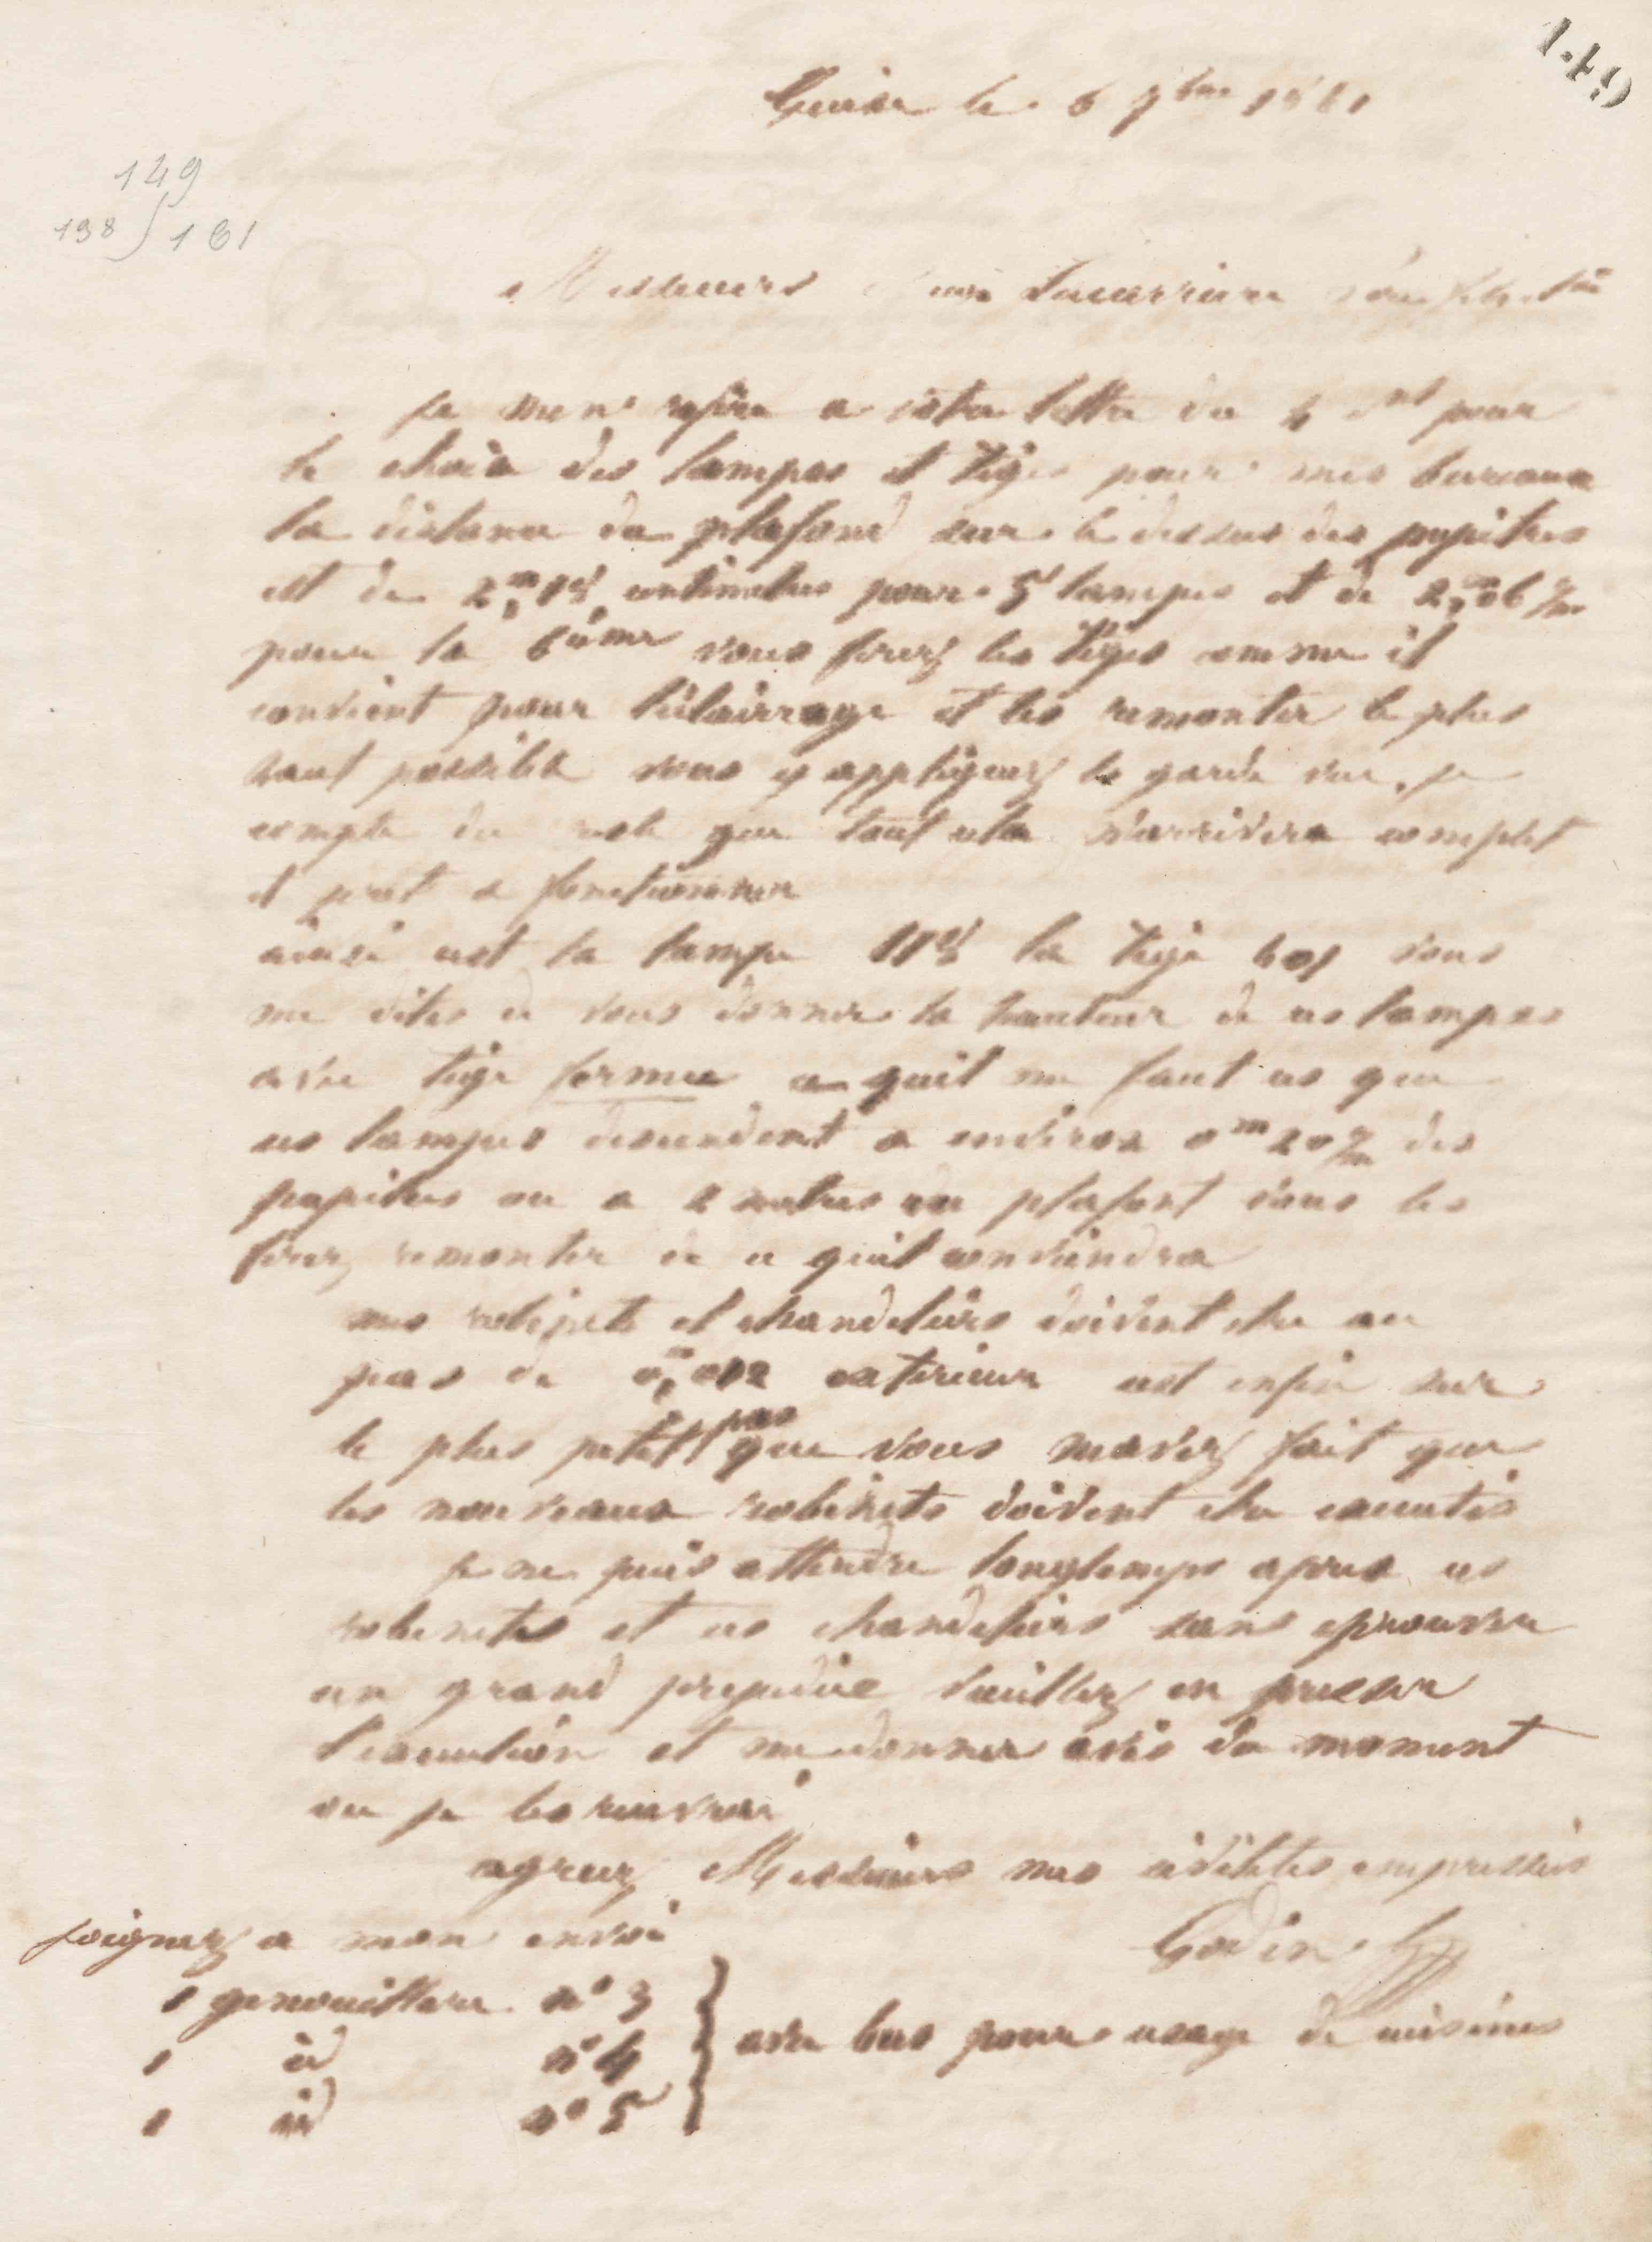 149
Guise le 6 7bre 1861
149
138 ∫ 161
Messieurs Lacarrière
je men refère a votre lettre du 4 ct pour
le choix des lampes et tiges pour mes bureaux
la distance du plafond sur le dessus des pupitres
est de 2m,18 centimetres pour 5 lampes et de 2m,06 c/m
pour la 6ème vous ferez les tiges comme il
convient pour l'éclairrage et les remonter le plus
haut possible vous y appliquez le garde vue, je
compte du reste que tout cela m'arrivera complet
et pret a fonctionner
ainsi cest la lampe la tige vous
me dites de vous donner la hauteur de ces lampes
avec tige fermee ce quil me faut cs que
ces lampes descendent a environ 0m20 c/m des
pupitres ou a 2 metres du plafont vous les
ferez remonter de ce quil conviendra
mes robinets et chandeliers doivent etre au
pas de 0m,012 exterieur cest enfin sur
le plus petit pas que vous mavez fait que
les nouveaux robinets doivent etre executés
je ne puis attendre longtemps apres ces
robinets et ces chandeliers sans eprouver
un grand prejudice veuillez en presser
l'execution et me donner avis du moment
ou je les recevrai
agreez Messieurs mes civilités empressées
Godin
joignez a mon envoi
1 genouillere n° 3
1 id n° 4
1 id n° 5
avec bec pour usage de cuisines